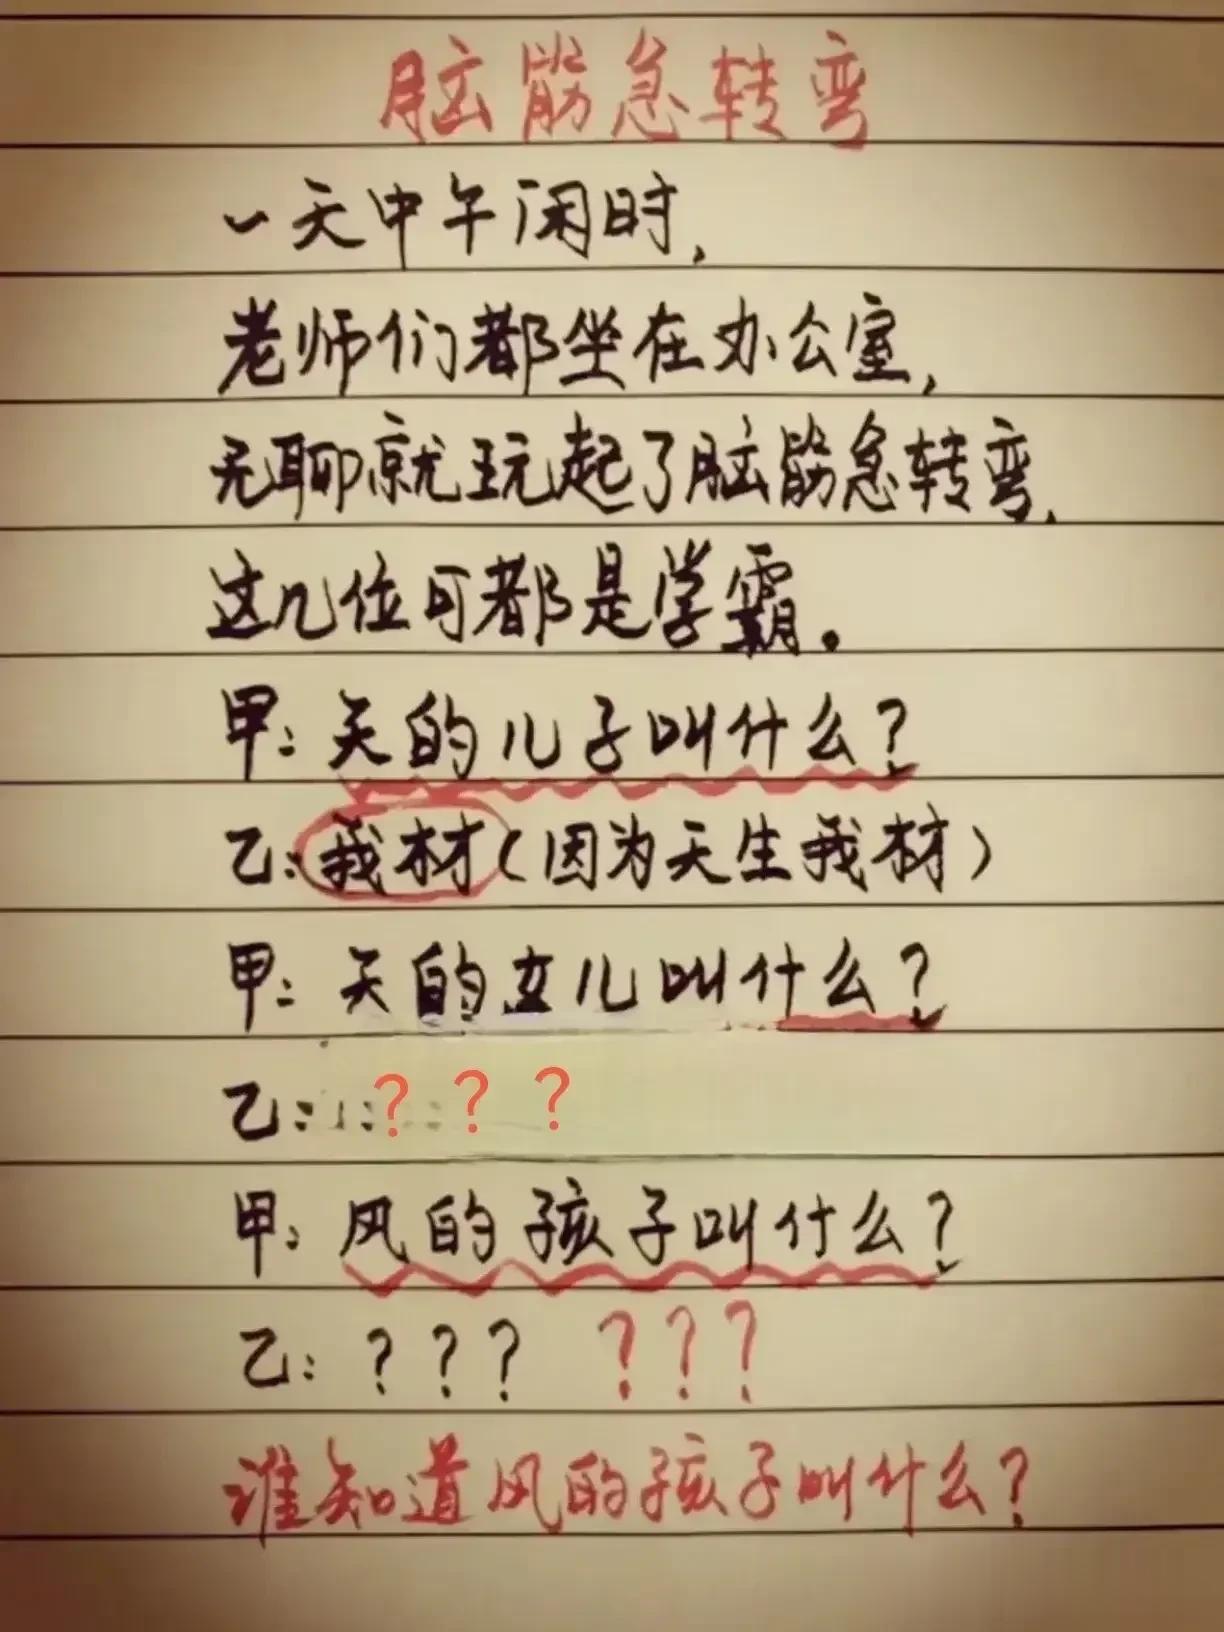 脑筋急转弯
一天中午闲时,
老师们都坐在办公室,
无聊就玩起了脑筋急转弯,
这几位可都是学霸。
甲: 天的儿子叫什么?
乙: 我材(因为天生我材)
甲: 天的女儿叫什么?
乙: ? ? ?
甲: 风的孩子叫什么?
乙: ? ? ? ? ? ?
谁知道风的孩子叫什么?